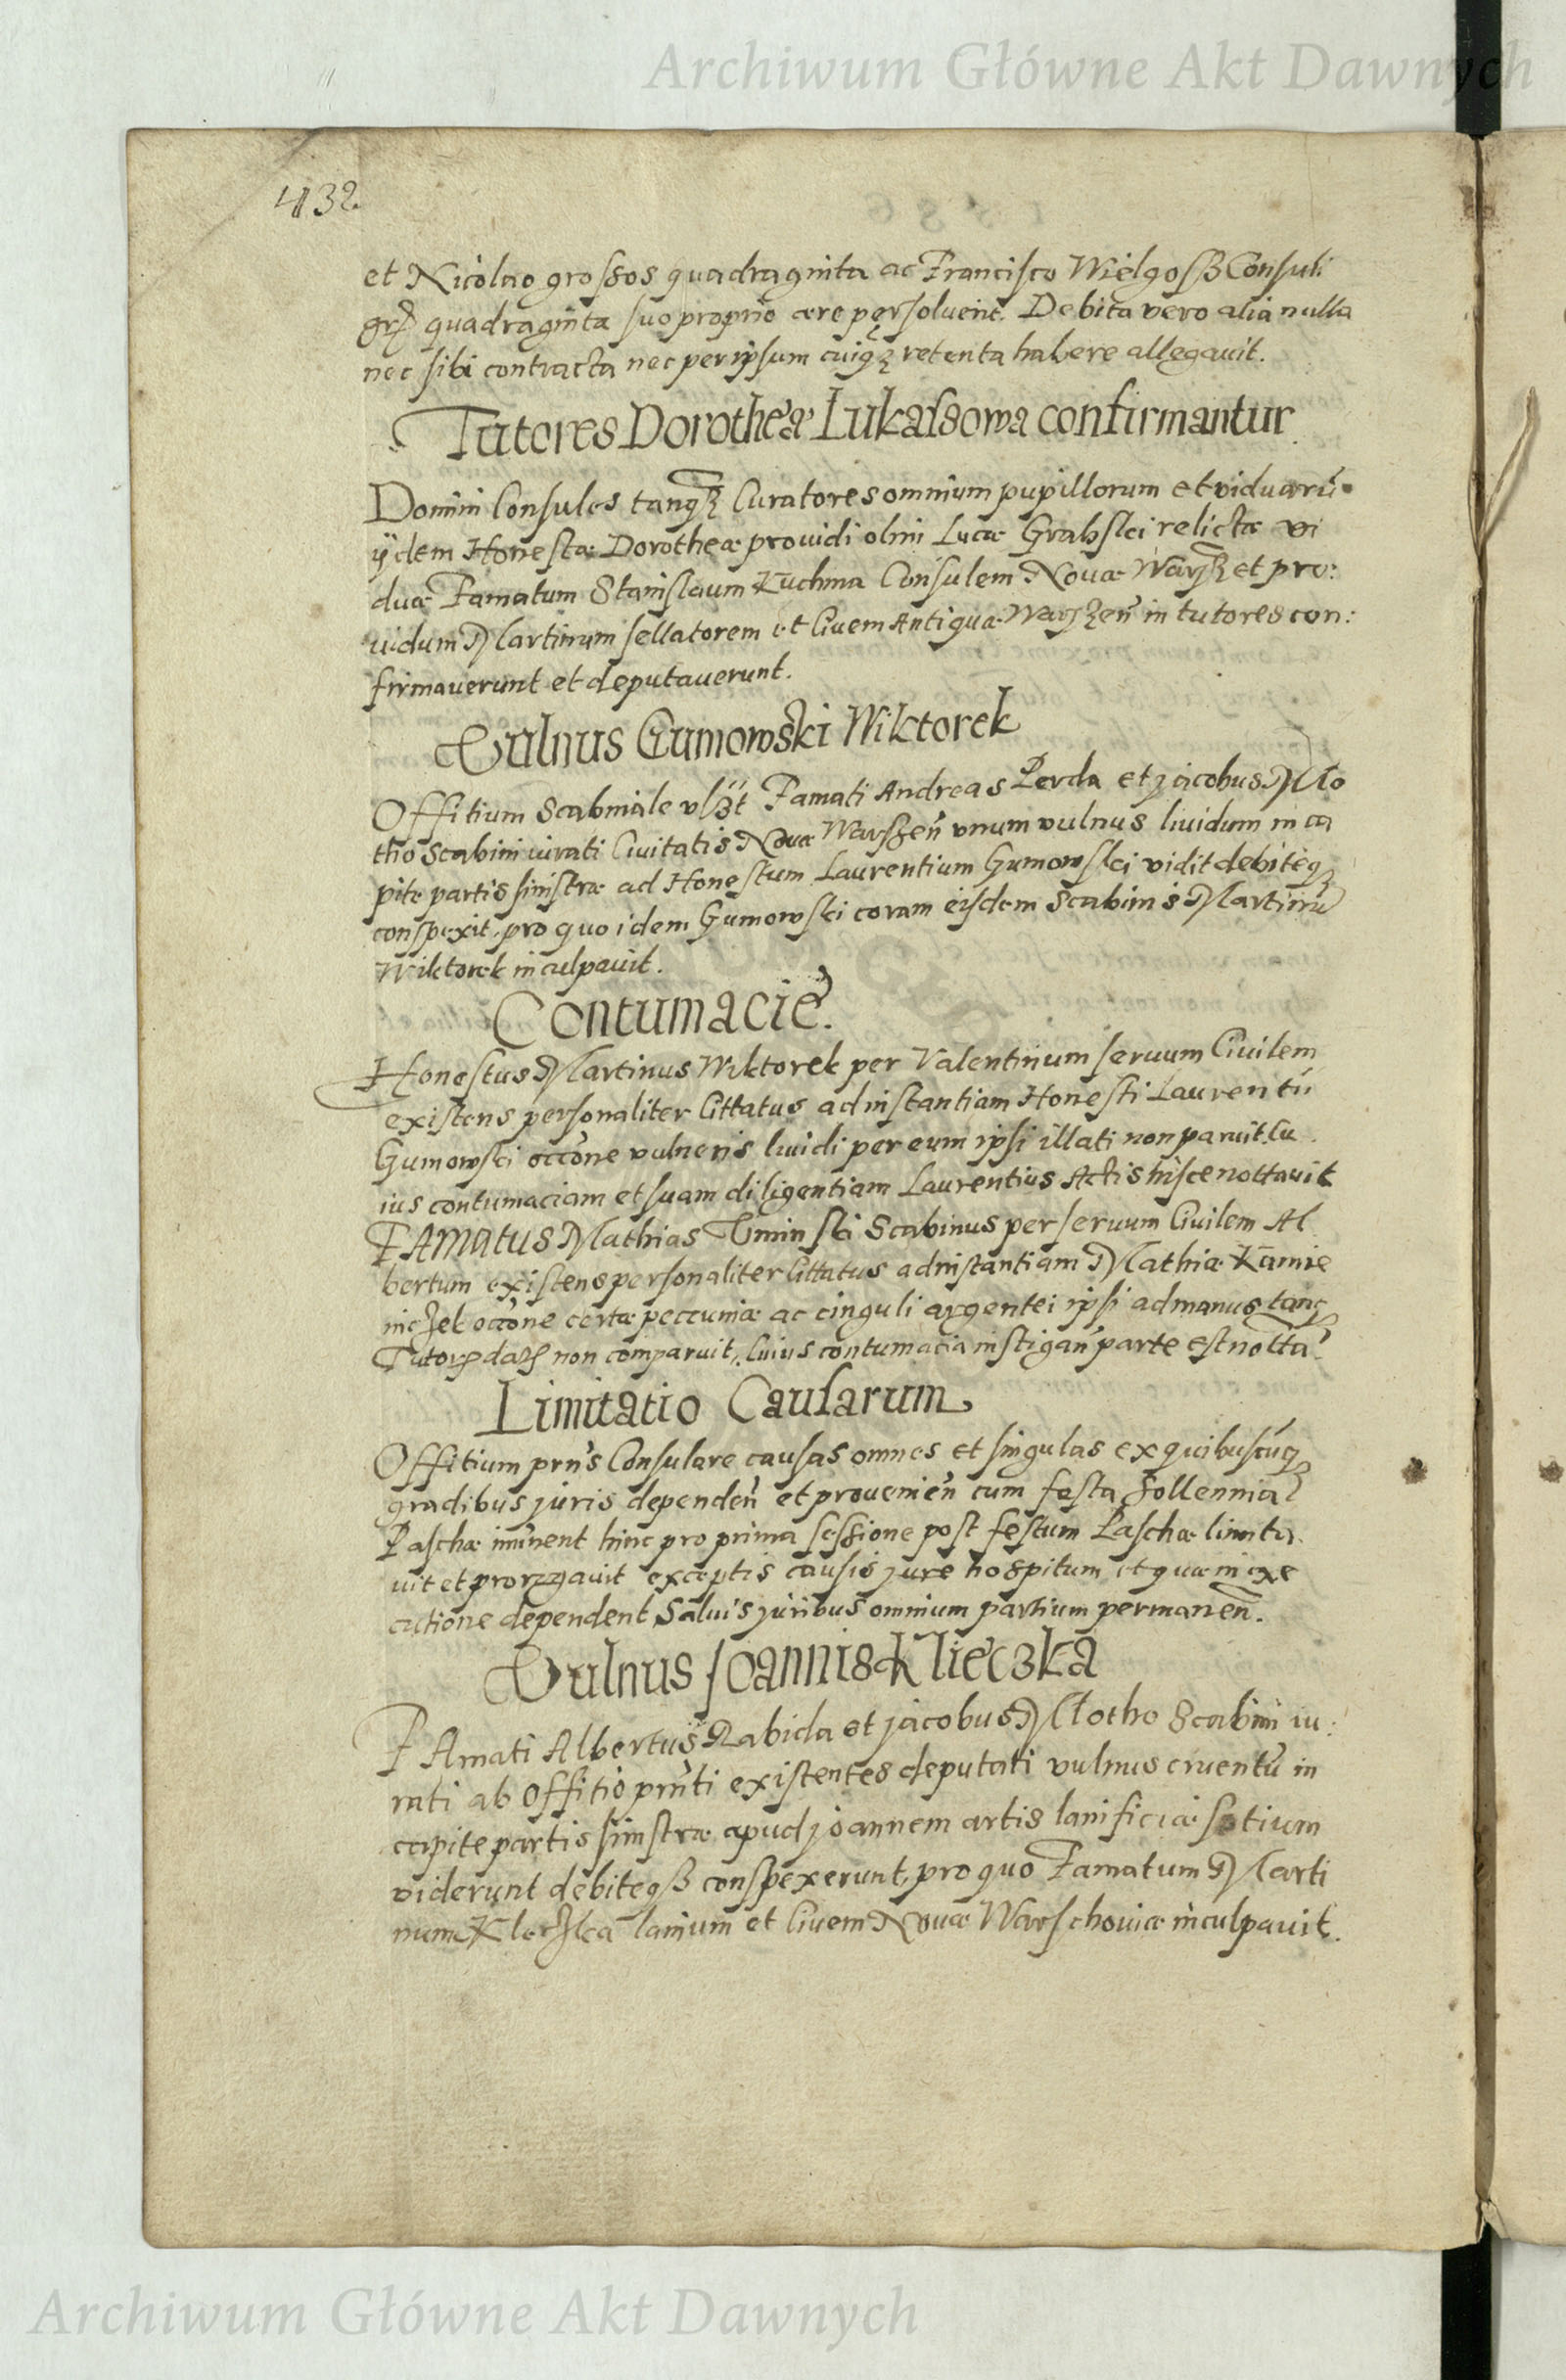 Archiwum Główne Akt Dawnych
432.
et Nicolao grossos quadraginta ac Francisco Wielgosz Consuli
grs quadraginta suo proprio aere persolverit. Debita vero alia nulla
nec sibi contracta nec per ipsum cuiq3 retenta habere allegauit.
Tutores Dorotheæ Lukassowa confirmantur
Domini Consules tanq3 Curatores omnium pupillorum et viduarū
ijdem Honestæ Dorotheæ prouidi olim Lucæ Grabski relictæ vi
duæ Famatum Stanislaum Kuchma Consulem Nouæ Warss et pro:
uidum Martinum sellatorem et Ciuem Antiquæ Warszeñ in tutores con:
firmauerunt et deputauerunt.
Vulnus Gumowski Wiktorek
Offitium Scabiniale Famati Andreas Perda et jacobus Mło
tho Scabini iurati Ciuitatis Nouæ Warszeñ vnum vulnus liuidum in ca
pite partis sinistræ ad Honestum Laurentium Gumowski vidit debiteq3
conspexit, pro quo idem Gumowski coram eisdem Scabinis Martinū
Wiktorek inculpauit.
Contumacie.
Honestus Martinus Wiktorek per Valentinum seruum Ciuilem
existens personaliter Cittatus ad instantiam Honesti Laurentii
Gumowski occõne vulneris liuidi per eum ipsi illati non paruit, Cu
ius contumaciam et suam diligentiam Laurentius Actis hisce nottauit
FAmatus Mathias Uminski Scabinus per seruum Ciuilem Al
bertum existens personaliter Cittatus ad instantiam Mathiæ Kamie
niczek occõne certæ peccuniæ ac cinguli argentei ipsi ad manus tanq3
Tutor dat non comparuit, Cuius contumacia instigañ parte est notta
Limitatio Causarum
Offitium prñs Consulare causas omnes et singulas ex quibuscūq3
gradibus juris dependeñ et proueniēn cum festa Sollennia
Paschæ iminent hinc pro prima sessione post festum Paschæ limita
uit et prorogauit exceptis causis jure hospitum et quæ in exe
cutione dependent Saluis juribus omnium partium permaneñ.
Vulnus Joannis Klieczka
FAmati Albertus Rabida et jacobus Młotho Scabini iu:
rati ab Offitio prñti existentes deputati vulnus cruentū in
capite partis sinistræ apud joannem artis lanificiæ sotium
viderunt debiteq3 conspexerunt, pro quo Famatum Marti
num Kleczka lanium et Ciuem Nouæ Warschouiæ inculpauit.
Archiwum Główne Akt Dawnych